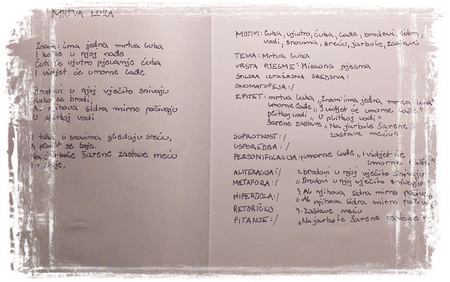 MRTVA LUKA
Znam: ima jedna mrtva luka
I ko se u njoj nađe
Čuti će ujutro pjevanje čuka
I vidjet će umorne lađe
Brodovi u njoj vječito snivaju
Kako se brodi,
njihova sidra mirno počivaju
U plitkoj vodi
I tako u snovima gledaju sreću,
A plovit se boje.
Na jarbole šarene zastave meću
boje.
MOTIVI: luka, ujutro, čuka, lađe, brodovi, sidra,
vodi, snovima, sreću, jarbole, zastave
TEMA: Mrtva luka
VRSTA PJESME: Misaona pjesma
IZRAŽAJNA SREDSTVA:
ONOMATOPEJA: /
EPITET: mrtva luka „Znam: ima jedna mrtva luka
umorne lađe „I vidjet će umorne lađe
plitkoj vodi „U plitkoj vodi"
šarene zastave „Na jarbole šarene
zastave meću"
SUPROTNOST: /
USPOREDBA: /
PERSONIFIKACIJA: umorne lađe „I vidjet će
umorne lađe"
ALITERACIJA: / 2. brodovi u njoj vječito snivaju
METAFORA: / „Brodovi u njoj vječito snivaju
HIPERBOLA: / 3. Al njihova sidra mirno
RETORIČKO „Al njihova sidra mirno
PITANJE: / zastave meću
„Na jarbole šarene zastave